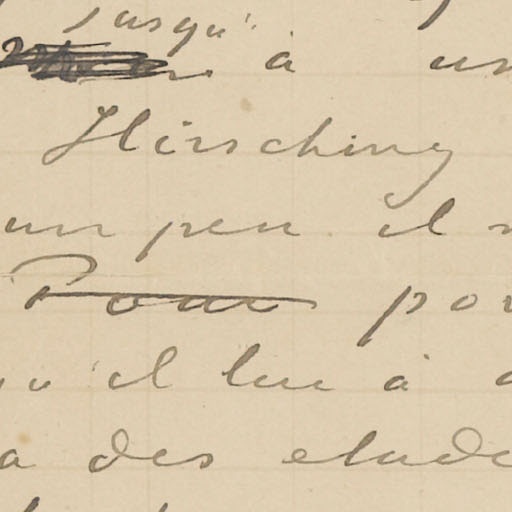 jusqu'
à un
Hirsching
un peu il
Pour po
u'il lui à
a des etude